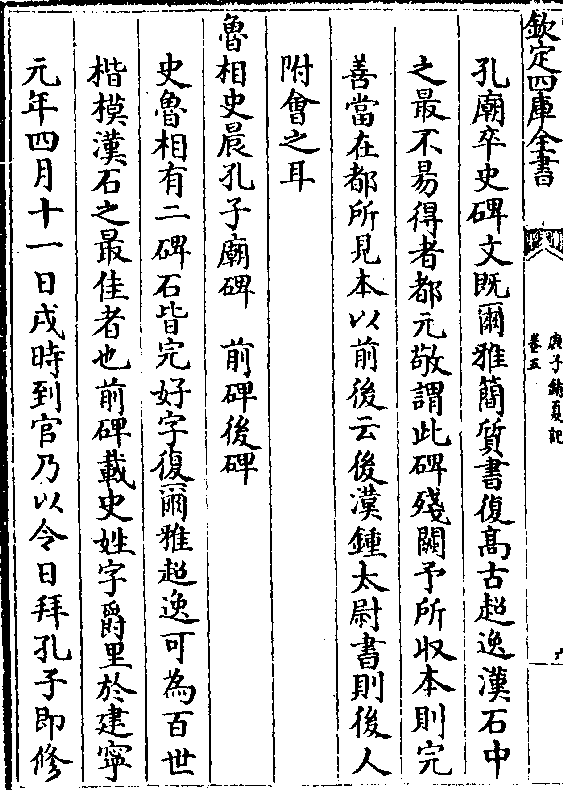 欽定四庫全書
庚子銷夏記
卷五
孔廟卒史碑文既爾雅簡質書復髙古超逸漢石中
之最不易得者都元敬謂此碑殘闕予所收本則完
善當在都所見本以前後云後漢鍾太尉書則後人
附會之耳
魯相史晨孔子廟碑 前碑後碑
史魯相有二碑石皆完好字復爾雅超逸可為百世
楷模漢石之最佳者也前碑載史姓字爵里於建寧
元年四月十一日戌時到官乃以令日拜孔子即修